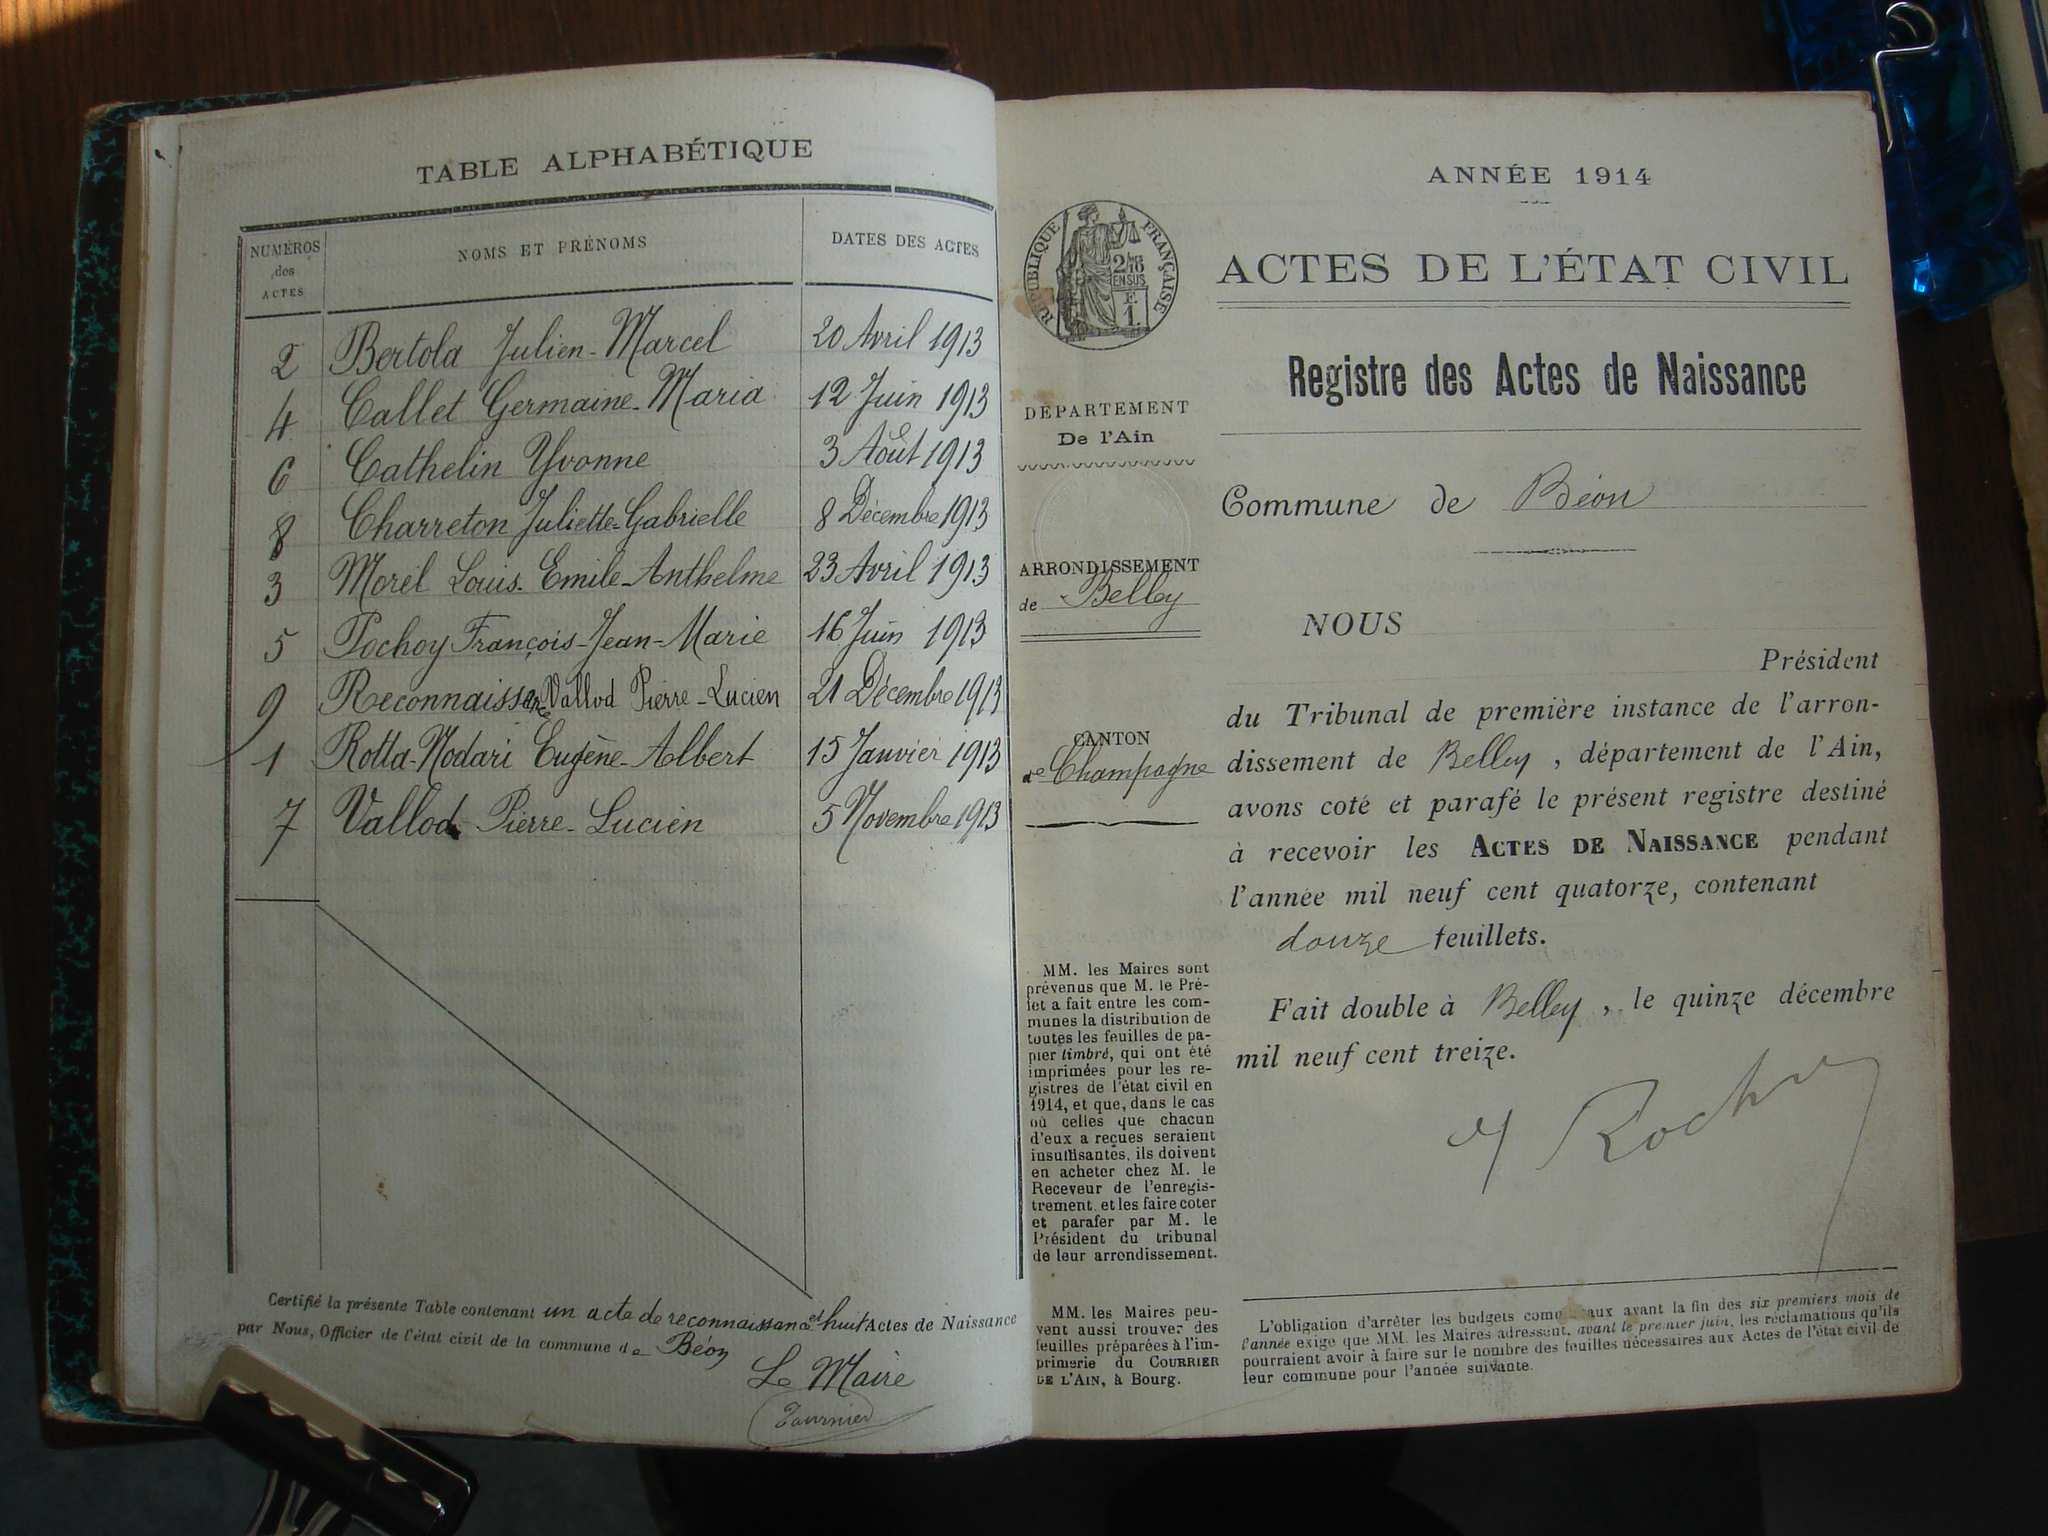 TABLE ALPHABÉTIQUE
NUMÉROS des ACTES NOMS ET PRÉNOMS DATES DES ACTES
2 Bertola Julien-Marcel 20 Avril 1913
4 Callet Germaine-Maria 12 Juin 1913
6 Cathelin Yvonne 3 Août 1913
8 Charreton Juliette-Gabrielle 8 Décembre 1913
3 Morel Louis-Emile-Anthelme 23 Avril 1913
5 Pochoy François-Jean-Marie 16 Juin 1913
9 Reconnaissance Vallod Pierre-Lucien 21 Décembre 1913
1 Rotta-Nodari Eugène-Albert 15 Janvier 1913
7 Vallod Pierre-Lucien 5 Novembre 1913
Certifié la présente Table contenant un acte de reconnaissance et huit Actes de Naissance
par Nous, Officier de l'état civil de la commune de Béon
Le Maire
Tournier
RÉPUBLIQUE FRANÇAISE
2/10
EN SUS
F.
1.
DÉPARTEMENT
De l'Ain
ARRONDISSEMENT
de Belley
CANTON
de Champagne
MM. les Maires sont
prévenus que M. le Pré-
fet a fait entre les com-
munes la distribution de
toutes les feuilles de pa-
pier timbré, qui ont été
imprimées pour les re-
gistres de l'état civil en
1914, et que, dans le cas
où celles que chacun
d'eux a reçues seraient
insuffisantes, ils doivent
en acheter chez M. le
Receveur de l'enregis-
trement, et les faire coter
et parafer par M. le
Président du tribunal
de leur arrondissement.
MM. les Maires peu-
vent aussi trouver des
feuilles préparées à l'im-
primerie du COURRIER
DE L'AIN, à Bourg.
ANNÉE 1914
ACTES DE L'ÉTAT CIVIL
Registre des Actes de Naissance
Commune de Béon
NOUS
Président
du Tribunal de première instance de l'arron-
dissement de Belley, département de l'Ain,
avons coté et parafé le présent registre destiné
à recevoir les ACTES DE NAISSANCE pendant
l'année mil neuf cent quatorze, contenant
douze feuillets.
Fait double à Belley, le quinze décembre
mil neuf cent treize.
L'obligation d'arrêter les budgets communaux avant la fin des six premiers mois de
l'année exige que MM. les Maires adressent, avant le premier juin, les réclamations qu'ils
pourraient avoir à faire sur le nombre des feuilles nécessaires aux Actes de l'état civil de
leur commune pour l'année suivante.